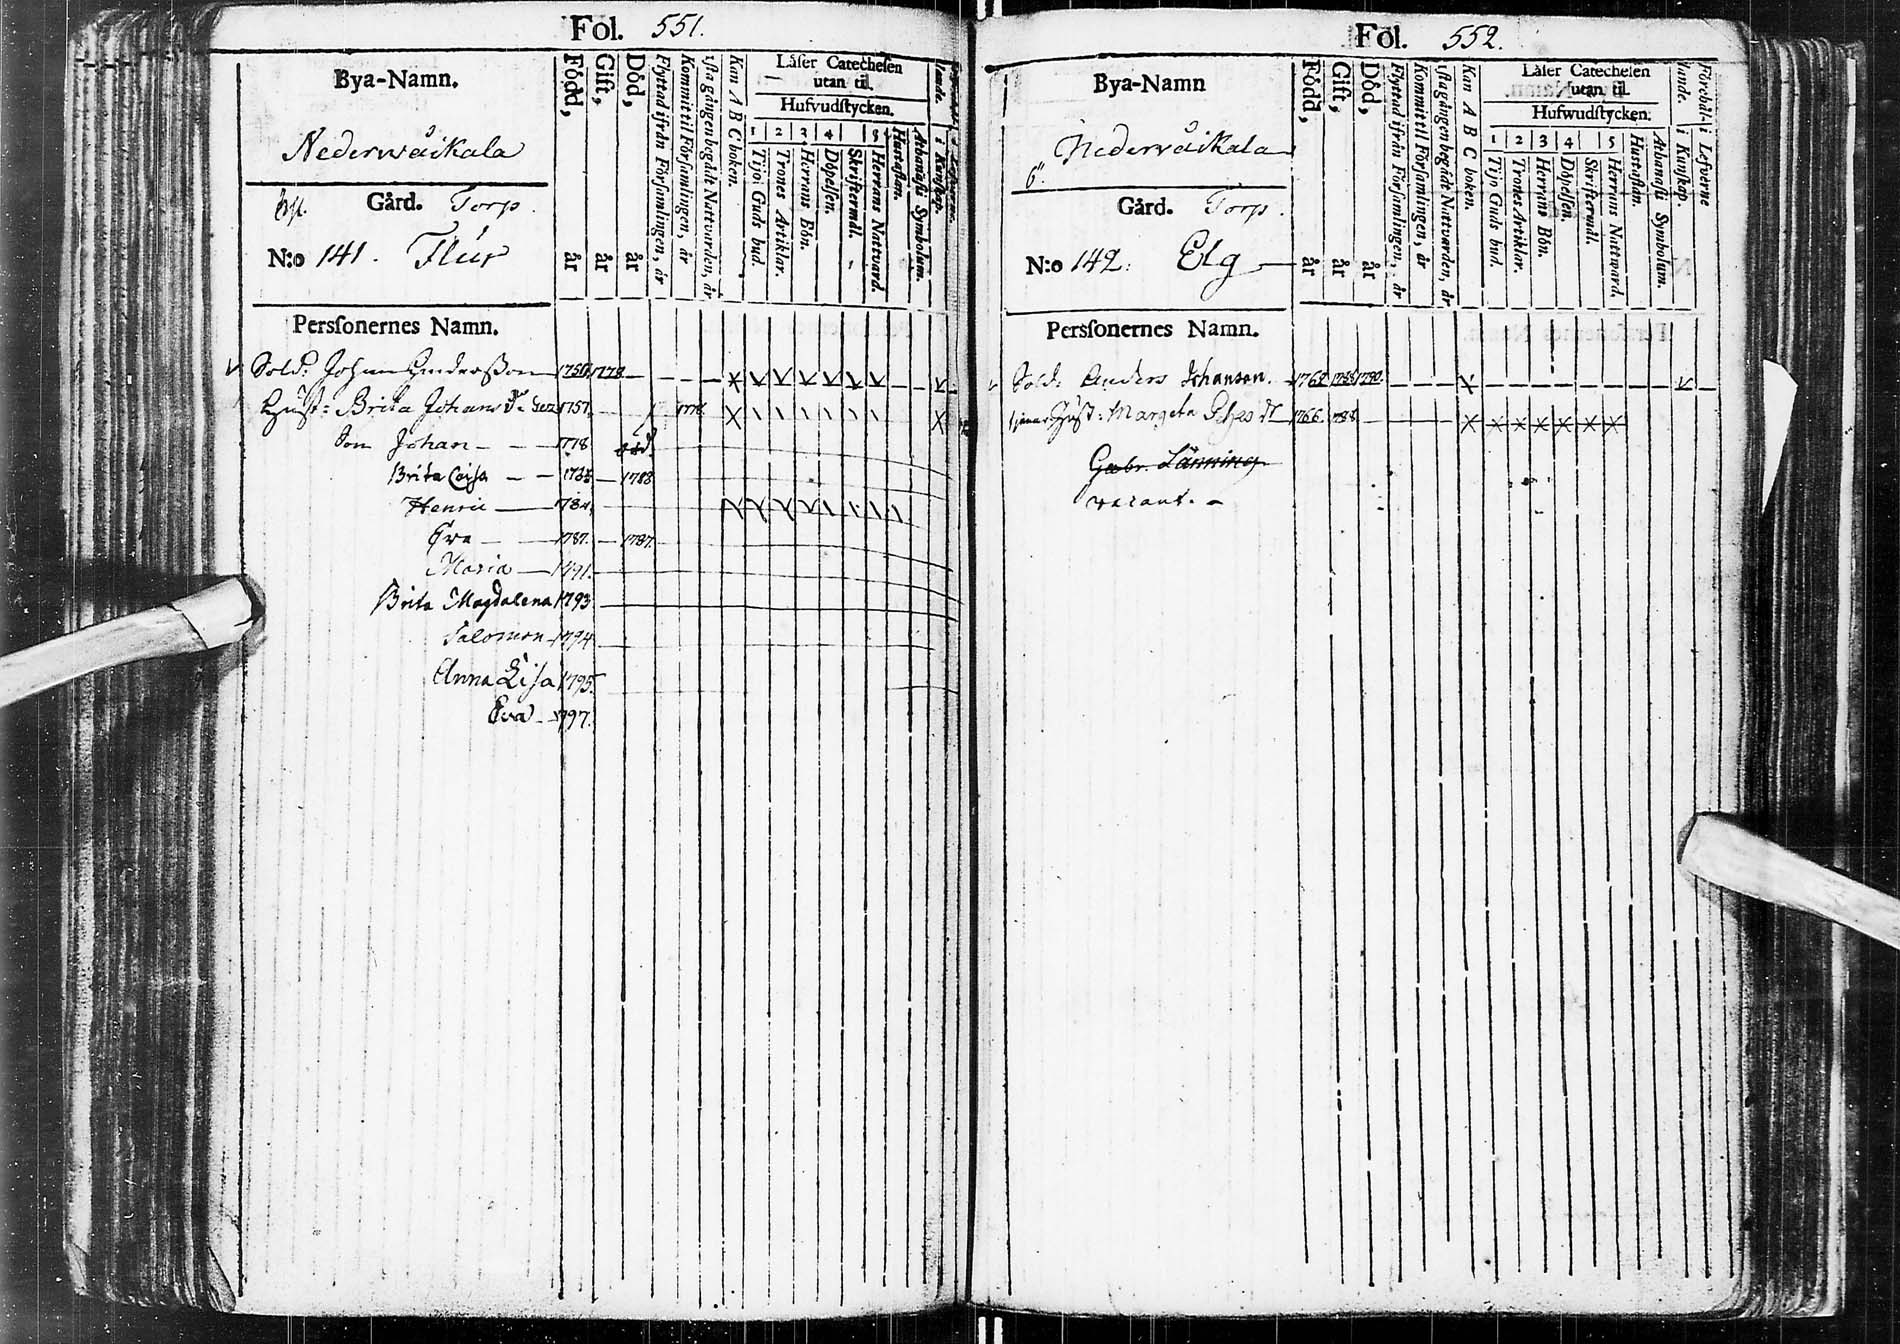 Fol. 551.
Bya-Namn.
Nederwåikala
Gård. Torp.
N:o 141. Flur
Född, år
Gift, år
Död, år
Flyttad ifrån Församlingen, år
Kommit till Församlingen, år
1sta gången begådt Nattvarden, år
Kan A B C boken.
Låser Catechesen
utan til.
Hufvudstycken.
1 2 3 4 5
Tijo Guds bud.
Trones Artiklar.
Herrans Bön.
Döpelsen.
Skriftermål.
Herrans Nattvard.
Hustaflan.
Athanasii Symbolum.
i Kunskap.
Personernes Namn.
Sold: Johan Andersson 1750 1778
Hust: Brita Johans dr 1757 1778
Son Johan 1778 död
Brita Caisa 1788
Henric 1784
Eva 1787. 1787.
Maria 1791.
Brita Magdalena 1793
Salomon 1794
Anna Lisa 1795.
Eva 1797.
Fol. 552.
Bya-Namn
Nederwåikala
Gård. Torp.
N:o 142: Elg
Född, år
Gift, år
Död, år
Flyttad ifrån Församlingen, år
Kommit till Församlingen, år
1sta gången begådt Nattvarden, år
Kan A B C boken.
Låser Catechesen
utan til.
Hufwudstycken.
1 2 3 4 5
Tijo Guds bud.
Trones Artiklar.
Herrans Bön.
Döpelsen.
Skriftermål.
Herrans Nattward.
Hustaflan.
Athanasii Symbolum.
Förehållande.
i Kunskap.
i Lefverne
Personernes Namn.
Sold: Anders Johanson. 1790.
Hust: Margeta 1766. 1788
Gabr. Länning
vacant.